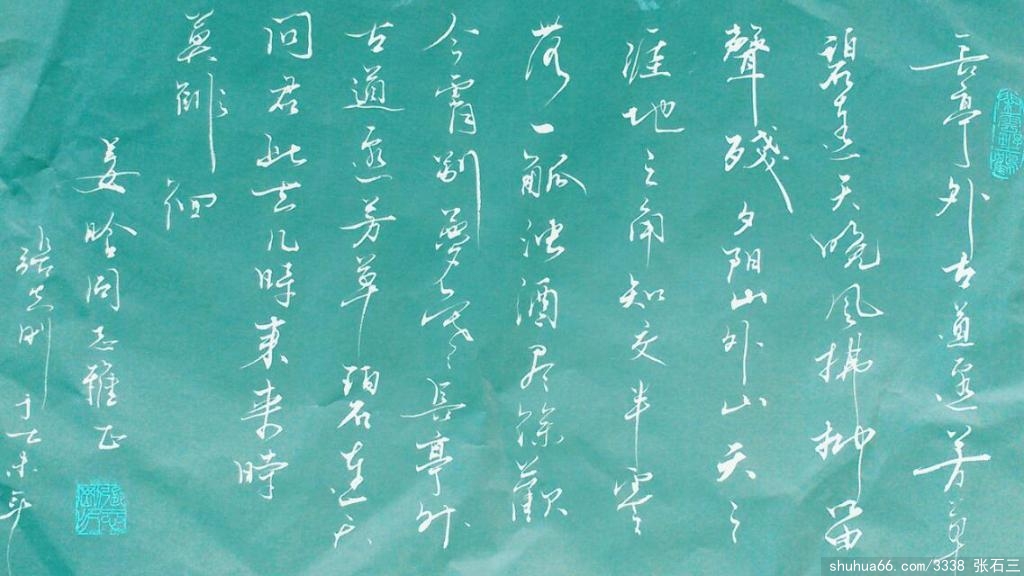 長亭外古道邊芳草
碧連天晚風拂柳笛
聲殘夕陽山外山天之
涯地之角知交半零
落一觚濁酒盡餘歡
今宵別夢寒長亭外
古道邊芳草碧連天
問君此去几時來來時
莫徘徊
姜晗同志雅正
張 于 未年
shuhua66.com/3338 张石三